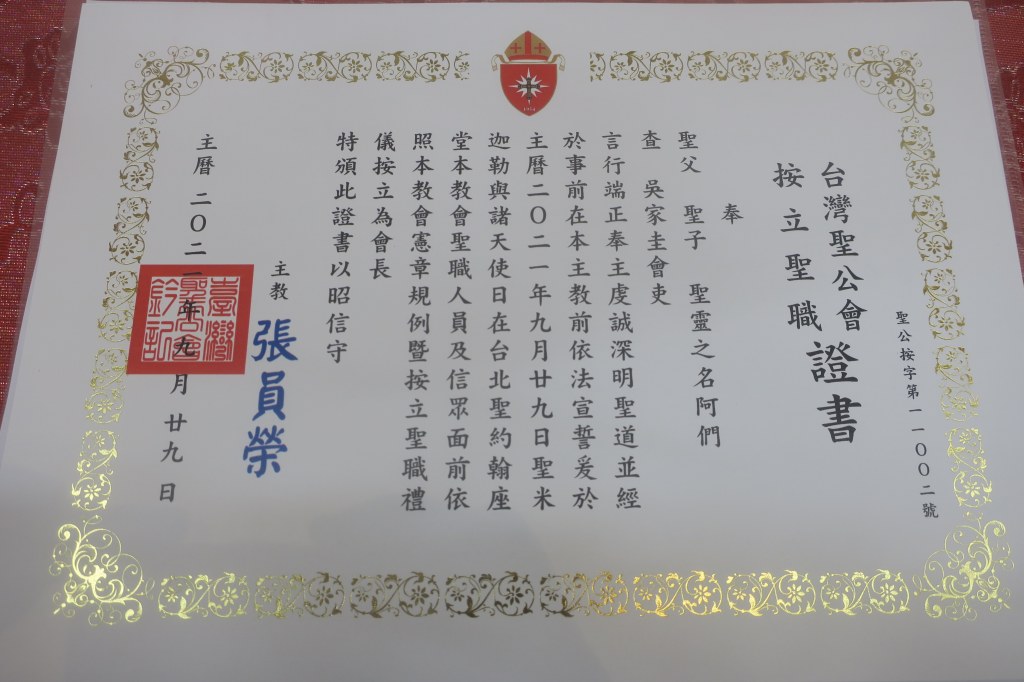 聖公按字第一一〇〇二號
台灣聖公會
按立聖職
證書
奉
聖父 聖子 聖靈之名阿們
查 吳家圭會吏
言行端正奉主虔誠深明聖道並經
於事前在本主教前依法宣誓爰於
主曆二〇二一年九月廿九日聖米
迦勒與諸天使日在台北聖約翰座
堂本教會聖職人員及信眾面前依
照本教會憲章規例暨按立聖職禮
儀按立為會長
特頒此證書以昭信守
主教 張員榮
主曆二〇二一年九月廿九日
臺灣聖公會鈐記
1954